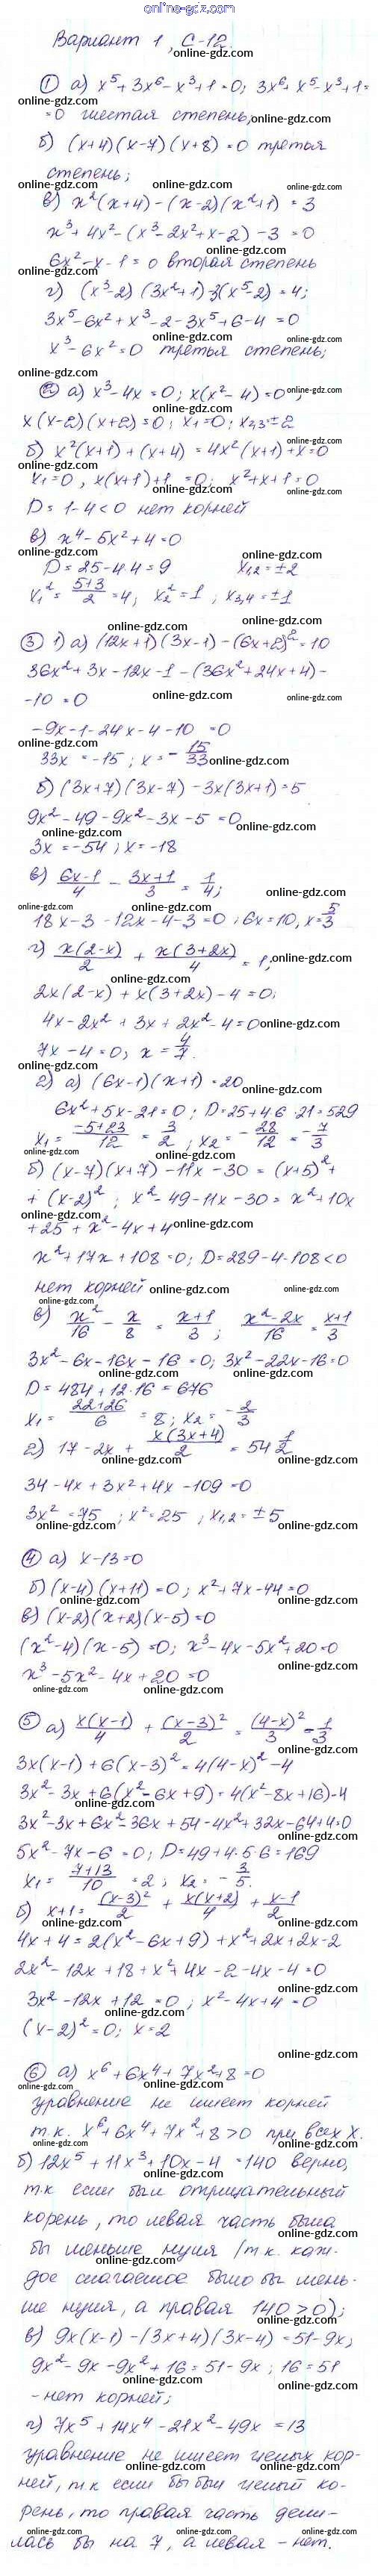 online-gdz.com
Вариант 1, С-12.
① а) x⁵ + 3x⁶ - x³ + 1 = 0; 3x⁶ + x⁵ - x³ + 1 =
= 0 шестая степень;
б) (x+4)(x-7)(x+8) = 0 третья
степень;
в) x²(x+4) - (x-2)(x²+1) = 3
x³ + 4x² - (x³ - 2x² + x - 2) - 3 = 0
6x² - x - 1 = 0 вторая степень
г) (x³-2)(3x²+1) - 3(x⁵-2) = 4;
3x⁵ - 6x² + x³ - 2 - 3x⁵ + 6 - 4 = 0
x³ - 6x² = 0 третья степень;
② а) x³ - 4x = 0; x(x² - 4) = 0;
x(x-2)(x+2) = 0; x₁ = 0; x₂,₃ = ±2
б) x²(x+1) + (x+4) = 4x²(x+1) + x = 0
x₁ = 0, x(x+1) + 1 = 0; x² + x + 1 = 0
D = 1 - 4 < 0 нет корней
в) x⁴ - 5x² + 4 = 0
D = 25 - 4·4 = 9 x₁,₂ = ±2
x₁² = (5+3)/2 = 4; x₂² = 1; x₃,₄ = ±1
③ 1) а) (12x+1)(3x-1) - (6x+2)² = 10
36x² + 3x - 12x - 1 - (36x² + 24x + 4) -
-10 = 0
-9x - 1 - 24x - 4 - 10 = 0
33x = -15; x = -15/33
б) (3x+7)(3x-7) - 3x(3x+1) = 5
9x² - 49 - 9x² - 3x - 5 = 0
3x = -54; x = -18
в) (6x-1)/4 - (3x+1)/3 = 1/4;
18x - 3 - 12x - 4 - 3 = 0; 6x = 10, x = 5/3
г) x(2-x)/2 + x(3+2x)/4 = 1;
2x(2-x) + x(3+2x) - 4 = 0;
4x - 2x² + 3x + 2x² - 4 = 0
7x - 4 = 0; x = 4/7.
2) а) (6x-1)(x+1) = 20
6x² + 5x - 21 = 0; D = 25 + 4·6·21 = 529
x₁ = (-5+23)/12 = 3/2; x₂ = -28/12 = -7/3
б) (x-7)(x+7) - 11x - 30 = (x+5)² +
+ (x-2)²; x² - 49 - 11x - 30 = x² + 10x
+ 25 + x² - 4x + 4
x² + 17x + 108 = 0; D = 289 - 4·108 < 0
нет корней
в) x²/16 - x/8 = (x+1)/3; (x²-2x)/16 = (x+1)/3
3x² - 6x - 16x - 16 = 0; 3x² - 22x - 16 = 0
D = 484 + 12·16 = 676
x₁ = (22+26)/6 = 8; x₂ = -2/3
г) 17 - 2x + x(3x+4)/2 = 54 1/2
34 - 4x + 3x² + 4x - 109 = 0
3x² = 75; x² = 25; x₁,₂ = ±5
④ а) x - 13 = 0
б) (x-4)(x+11) = 0; x² + 7x - 44 = 0
в) (x-2)(x+2)(x-5) = 0
(x²-4)(x-5) = 0; x³ - 4x - 5x² + 20 = 0
x³ - 5x² - 4x + 20 = 0
⑤ а) x(x-1)/4 + (x-3)²/2 = (4-x)²/3 - 1/3
3x(x-1) + 6(x-3)² = 4(4-x)² - 4
3x² - 3x + 6(x² - 6x + 9) = 4(x² - 8x + 16) - 4
3x² - 3x + 6x² - 36x + 54 - 4x² + 32x - 64 + 4 = 0
5x² - 7x - 6 = 0; D = 49 + 4·5·6 = 169
x₁ = (7+13)/10 = 2; x₂ = -3/5.
б) x + 1 = (x-3)²/2 + x(x+2)/4 + (x-1)/2
4x + 4 = 2(x² - 6x + 9) + x² + 2x + 2x - 2
2x² - 12x + 18 + x² + 4x - 2 - 4x - 4 = 0
3x² - 12x + 12 = 0; x² - 4x + 4 = 0
(x-2)² = 0; x = 2
⑥ а) x⁶ + 6x⁴ + 7x² + 8 = 0
уравнение не имеет корней
т.к. x⁶ + 6x⁴ + 7x² + 8 > 0 при всех x.
б) 12x⁵ + 11x³ + 10x - 4 = 140 верно,
т.к если был отрицательный
корень, то левая часть была
бы меньше нуля (т.к. каж-
дое слагаемое было бы мень-
ше нуля, а правая 140 > 0);
в) 9x(x-1) - (3x+4)(3x-4) = 51 - 9x;
9x² - 9x - 9x² + 16 = 51 - 9x; 16 = 51
- нет корней;
г) 7x⁵ + 14x⁴ - 21x² - 49x = 13
уравнение не имеет целых кор-
ней, т.к если бы был целый ко-
рень, то правая часть дели-
лась бы на 7, а левая - нет.